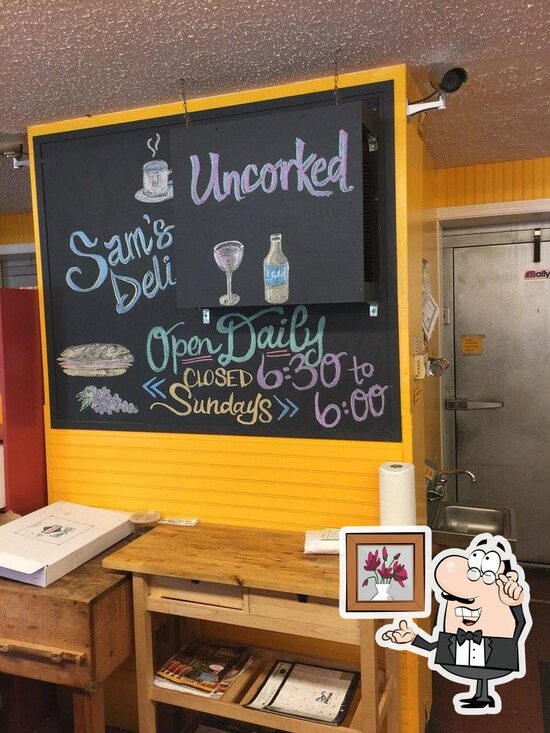 Uncorked
Sam's
Deli
Open Daily
6:30 to
6:00
CLOSED
Sundays
Bally